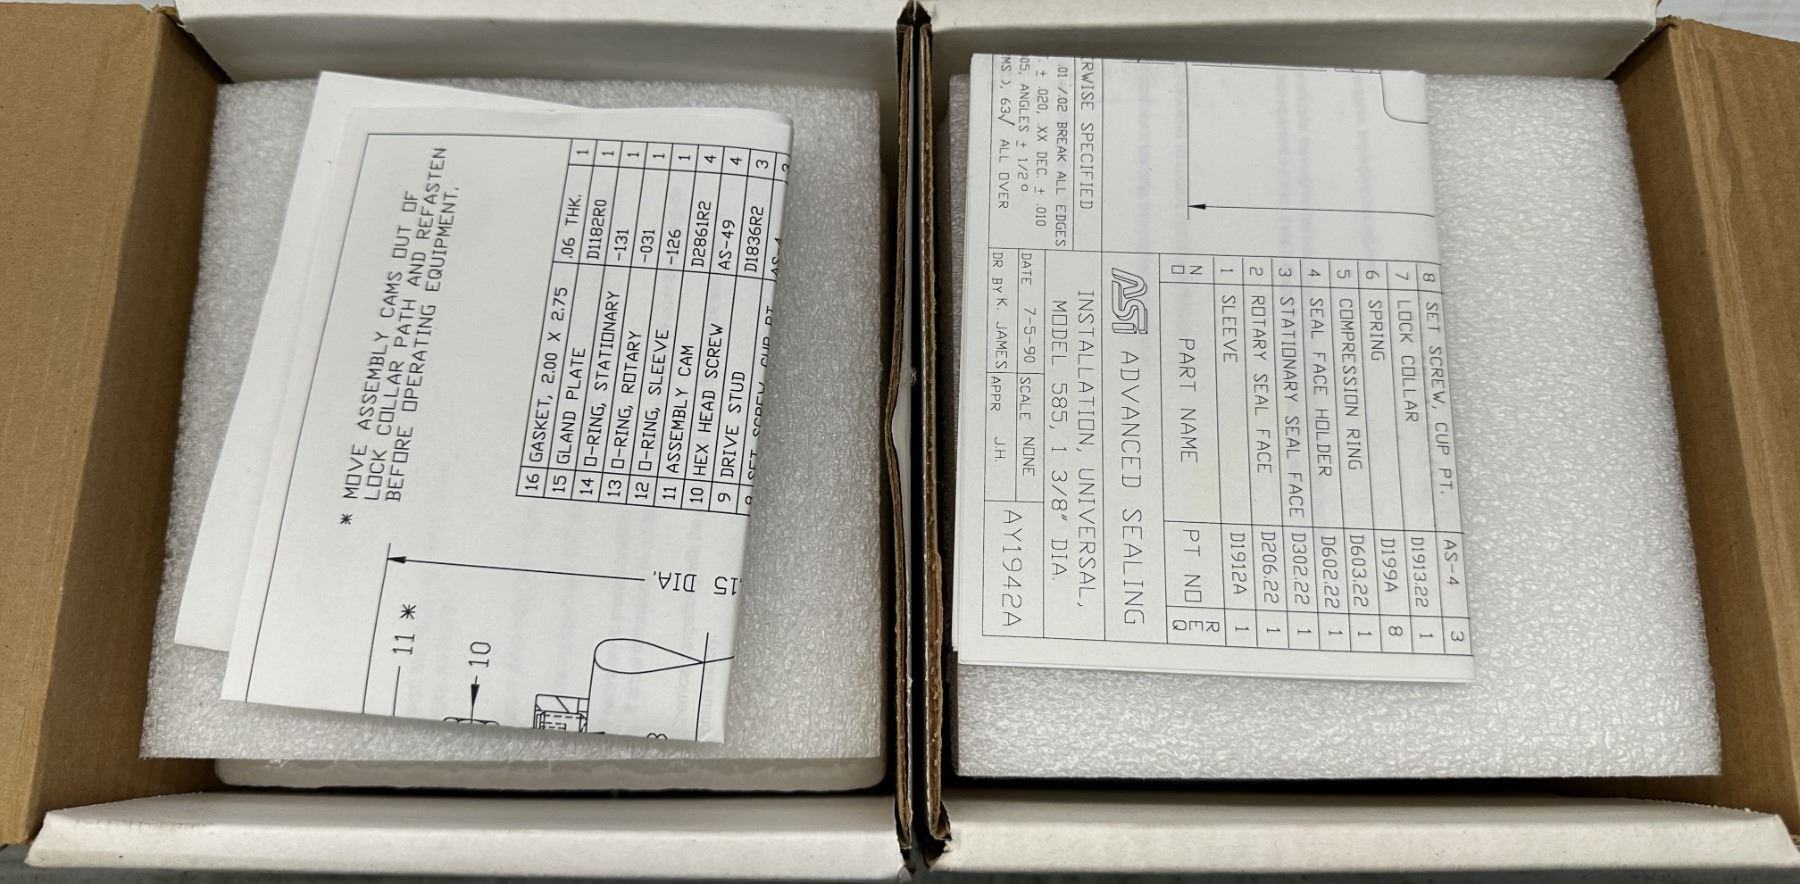 * MOVE ASSEMBLY CAMS OUT OF
LOCK COLLAR PATH AND REFASTEN
BEFORE OPERATING EQUIPMENT.
16 GASKET, 2.00 X 2.75 .06 THK. 1
15 GLAND PLATE D1182R0 1
14 O-RING, STATIONARY -131 1
13 O-RING, ROTARY -031 1
12 O-RING, SLEEVE -126 1
11 ASSEMBLY CAM D2861R2 4
10 HEX HEAD SCREW AS-49 4
9 DRIVE STUD D1836R2 3
8 SET SCREW, CUP PT. AS-4 3
11 *
10
.15 DIA.
8
RWISE SPECIFIED
.01 /.02 BREAK ALL EDGES
. ± .020, .XX DEC. ± .010
05, ANGLES ± 1/2°
MS ), 63√ ALL OVER
8 SET SCREW, CUP PT. AS-4 3
7 LOCK COLLAR D1913.22 1
6 SPRING D199A 8
5 COMPRESSION RING D603.22 1
4 SEAL FACE HOLDER D602.22 1
3 STATIONARY SEAL FACE D302.22 1
2 ROTARY SEAL FACE D206.22 1
1 SLEEVE D1912A 1
NO PART NAME PT NO REQ
ASI ADVANCED SEALING
INSTALLATION, UNIVERSAL,
MODEL 585, 1 3/8" DIA.
DATE 7-5-90 SCALE NONE
DR BY K. JAMES APPR J.H.
AY1942A